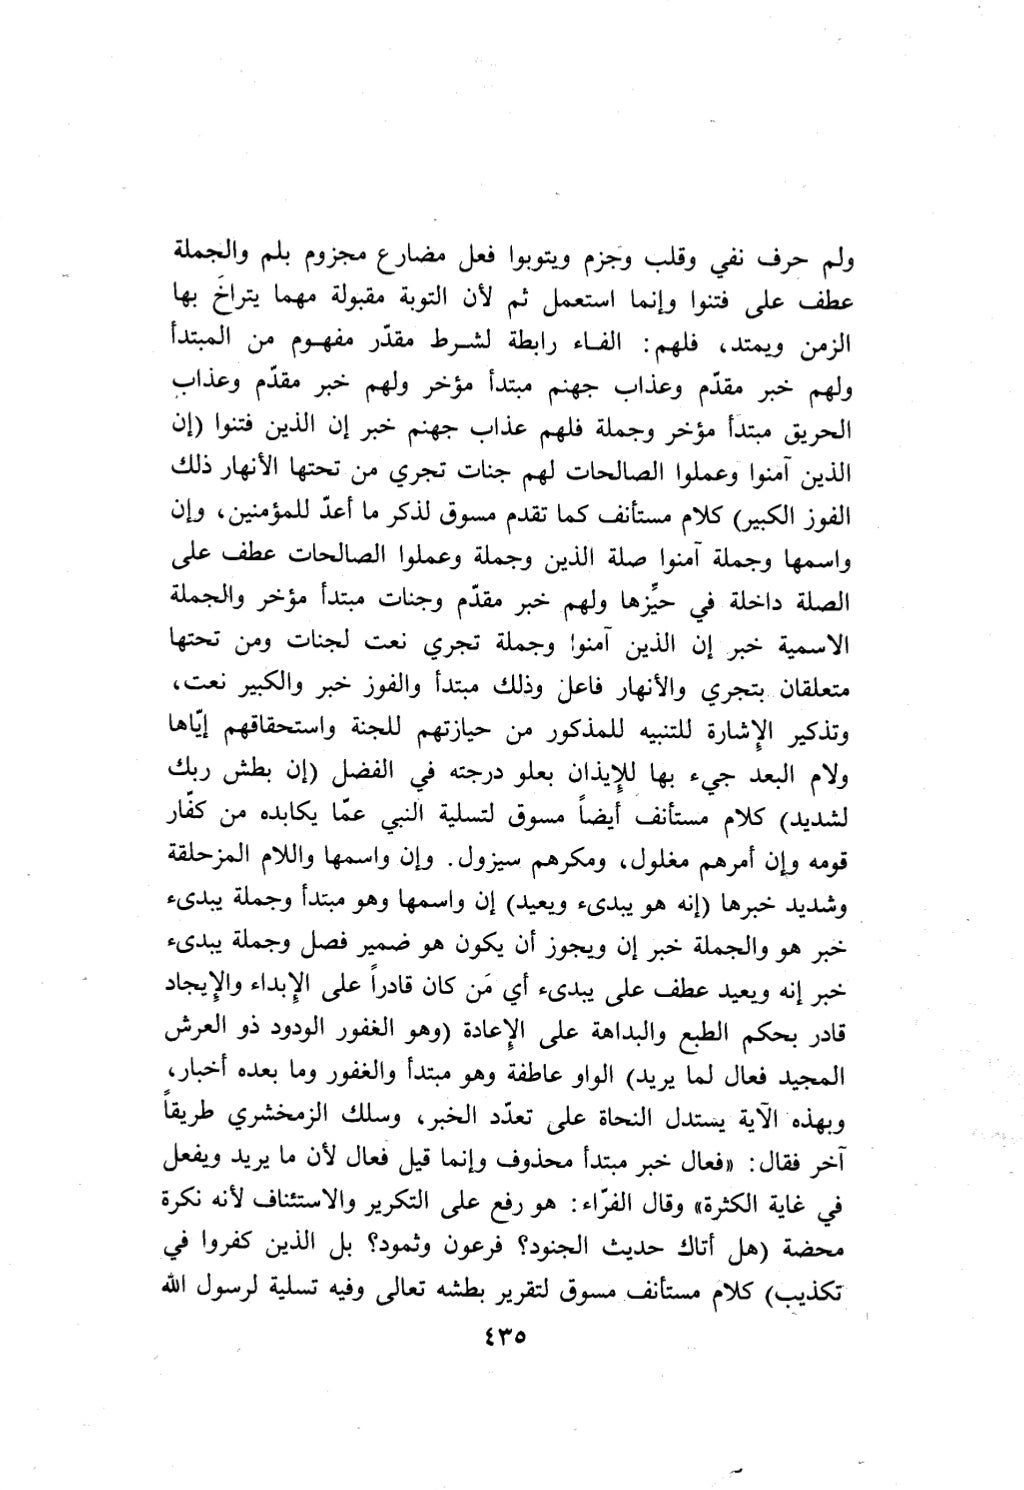 ولم حرف نفي وقلب وَجزم ويتوبوا فعل مضارع مجزوم بلم والجملة
عطف على فتنوا وإنما استعمل ثم لأن التوبة مقبولة مهما يتراخَ بها
الزمن ويمتد، فلهم: الفاء رابطة لشرط مقدّر مفهوم من المبتدأ
ولهم خبر مقدّم وعذاب جهنم مبتدأ مؤخر ولهم خبر مقدّم وعذاب
الحريق مبتدأ مؤخر وجملة فلهم عذاب جهنم خبر إن الذين فتنوا (إن
الذين آمنوا وعملوا الصالحات لهم جنات تجري من تحتها الأنهار ذلك
الفوز الكبير) كلام مستأنف كما تقدم مسوق لذكر ما أعدّ للمؤمنين، وإن
واسمها وجملة آمنوا صلة الذين وجملة وعملوا الصالحات عطف على
الصلة داخلة في حيِّزها ولهم خبر مقدّم وجنات مبتدأ مؤخر والجملة
الاسمية خبر إن الذين آمنوا وجملة تجري نعت لجنات ومن تحتها
متعلقان بتجري والأنهار فاعل وذلك مبتدأ والفوز خبر والكبير نعت،
وتذكير الإشارة للتنبيه للمذكور من حيازتهم للجنة واستحقاقهم إيّاها
ولام البعد جيء بها للإيذان بعلو درجته في الفضل (إن بطش ربك
لشديد) كلام مستأنف أيضاً مسوق لتسلية النبي عمّا يكابده من كفّار
قومه وإن أمرهم مغلول، ومكرهم سيزول. وإن واسمها واللام المزحلقة
وشديد خبرها (إنه هو يبدىء ويعيد) إن واسمها وهو مبتدأ وجملة يبدىء
خبر هو والجملة خبر إن ويجوز أن يكون هو ضمير فصل وجملة يبدىء
خبر إنه ويعيد عطف على يبدىء أي مَن كان قادراً على الإبداء والإيجاد
قادر بحكم الطبع والبداهة على الإعادة (وهو الغفور الودود ذو العرش
المجيد فعال لما يريد) الواو عاطفة وهو مبتدأ والغفور وما بعده أخبار،
وبهذه الآية يستدل النحاة على تعدّد الخبر، وسلك الزمخشري طريقاً
آخر فقال: «فعال خبر مبتدأ محذوف وإنما قيل فعال لأن ما يريد ويفعل
في غاية الكثرة» وقال الفرّاء: هو رفع على التكرير والاستئناف لأنه نكرة
محضة (هل أتاك حديث الجنود؟ فرعون وثمود؟ بل الذين كفروا في
تكذيب) كلام مستأنف مسوق لتقرير بطشه تعالى وفيه تسلية لرسول الله
٤٣٥